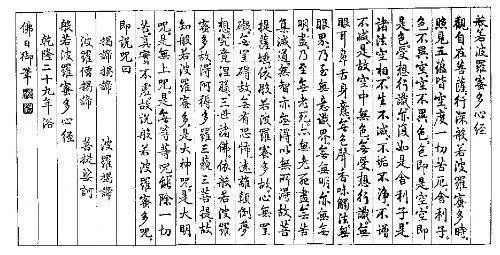 般若波羅蜜多心經
觀自在菩薩行深般若波羅蜜多時
照見五蘊皆空度一切苦厄舍利子
色不異空空不異色色即是空空即
是色受想行識亦復如是舍利子是
諸法空相不生不滅不垢不淨不增
不減是故空中無色無受想行識無
眼耳鼻舌身意無色聲香味觸法無
眼界乃至無意識界無無明亦無無
明盡乃至無老死亦無老死盡無苦
集滅道無智亦無得以無所得故菩
提薩埵依般若波羅蜜多故心無罣
礙無罣礙故無有恐怖遠離顛倒夢
想究竟涅槃三世諸佛依般若波羅
蜜多故得阿耨多羅三藐三菩提故
知般若波羅蜜多是大神咒是大明
咒是無上咒是無等等咒能除一切
苦真實不虛故說般若波羅蜜多咒
即說咒曰
揭諦揭諦 波羅揭諦
波羅僧揭諦 菩提娑訶
般若波羅蜜多心經
乾隆二十九年浴
佛日御筆